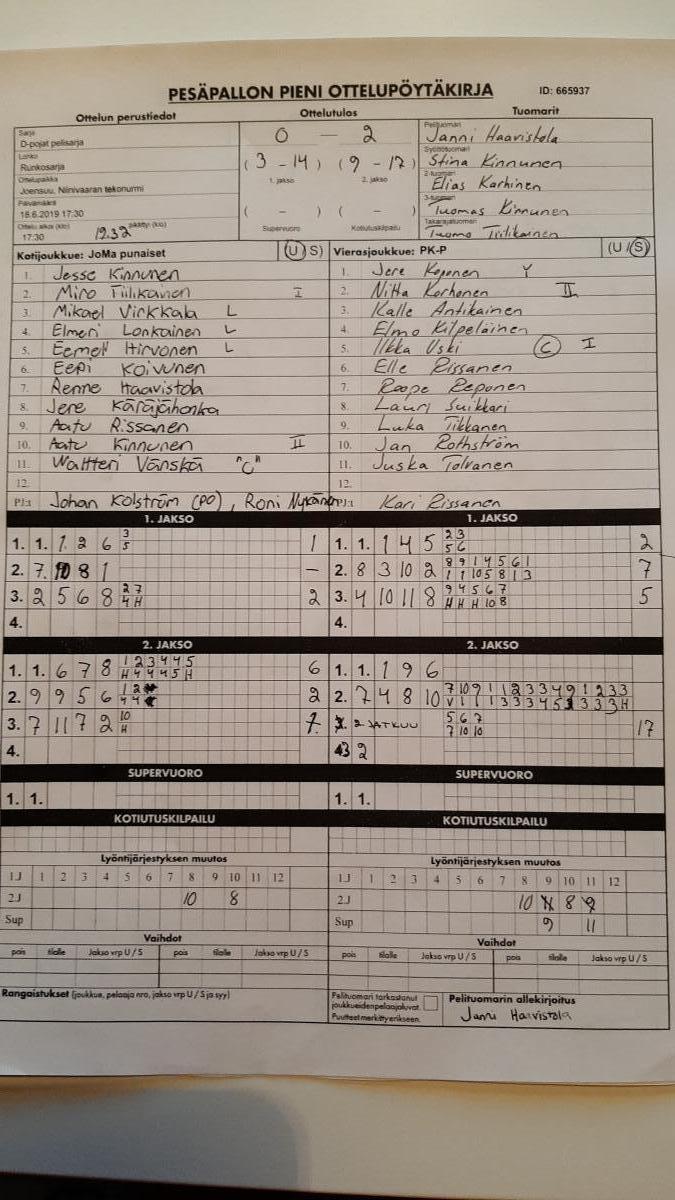 PESÄPALLON PIENI OTTELUPÖYTÄKIRJA ID: 665937
Ottelun perustiedot Ottelutulos Tuomarit
Sarja
D-pojat pelisarja
Lohko
Runkosarja
Ottelupaikka
Joensuu, Niinivaaran tekonurmi
Päivämäärä
18.6.2019 17:30
Ottelu alkoi (klo) päättyi (klo)
17:30 19.32
0 – 2
(3 - 14) (9 - 17)
1. jakso 2. jakso
( - ) ( - )
Supervuoro Kotiutuskilpailu
Pelituomari
Janni Haavistola
Syöttötuomari
Stina Kinnunen
2-tuomari
Elias Karhinen
3-tuomari
Tuomas Kinnunen
Takarajatuomari
Tuomo Tiilikainen
Kotijoukkue: JoMa punaiset (U/S)
1. Jesse Kinnunen
2. Miro Tiilikainen I
3. Mikael Virkkala L
4. Elmeri Lonkainen L
5. Eemeli Hirvonen L
6. Eepi Koivunen
7. Renne Haavistola
8. Jere Käräjähonka
9. Aatu Rissanen
10. Aatu Kinnunen II
11. Waltteri Vänskä "C"
12.
PJ:t Johan Kolström (PO), Roni Nykänen
Vierasjoukkue: PK-P (U/S)
1. Jere Koponen Y
2. Niitta Korhonen II
3. Kalle Antikainen
4. Elmo Kilpeläinen
5. Ilkka Uski C I
6. Elle Rissanen
7. Roope Reponen
8. Lauri Suikkari
9. Luka Tikkanen
10. Jan Rothström
11. Juska Tolvanen
12.
PJ:t Kari Rissanen
1. JAKSO
1. 1. 1. 2 6 3 1
5
2. 7. 10 8 1 –
3. 2 5 6 8 2 7 2
4 H
4.
1. JAKSO
1. 1. 1 4 5 2 3 2
5 6
2. 8 3 10 2 8 9 1 4 5 6 1 7
1 1 10 5 8 1 3
3. 4 10 11 8 9 4 5 6 7 5
H H H 10 8
4.
2. JAKSO
1. 1. 6 7 8 1 2 3 4 4 5 6
H 4 4 4 5 H
2. 9 9 5 6 1 2 2
4 4
3. 7 11 7 2 10 1.
H
4.
2. JAKSO
1. 1. 1 9 6
2. 7 4 8 10 7 10 9 1 1 2 3 3 4 9 1 2 3 3
V 1 1 1 3 3 3 4 5 3 3 3 3 H
2 JATKUU 5 6 7 17
7 10 10
3 2
SUPERVUORO
1. 1.
SUPERVUORO
1. 1.
KOTIUTUSKILPAILU
KOTIUTUSKILPAILU
Lyöntijärjestyksen muutos
1J 1 2 3 4 5 6 7 8 9 10 11 12
2J 10 8
Sup
Lyöntijärjestyksen muutos
1J 1 2 3 4 5 6 7 8 9 10 11 12
2J 10 8
Sup 9 11
Vaihdot
pois tilalle Jakso vrp U / S pois tilalle Jakso vrp U / S
Vaihdot
pois tilalle Jakso vrp U / S pois tilalle Jakso vrp U / S
Rangaistukset (joukkue, pelaaja nro, jakso vrp U / S ja syy)
Pelituomari tarkastanut
joukkueidenpelaajaluvat.
Puutteet merkitty erikseen.
Pelituomarin allekirjoitus
Janni Haavistola